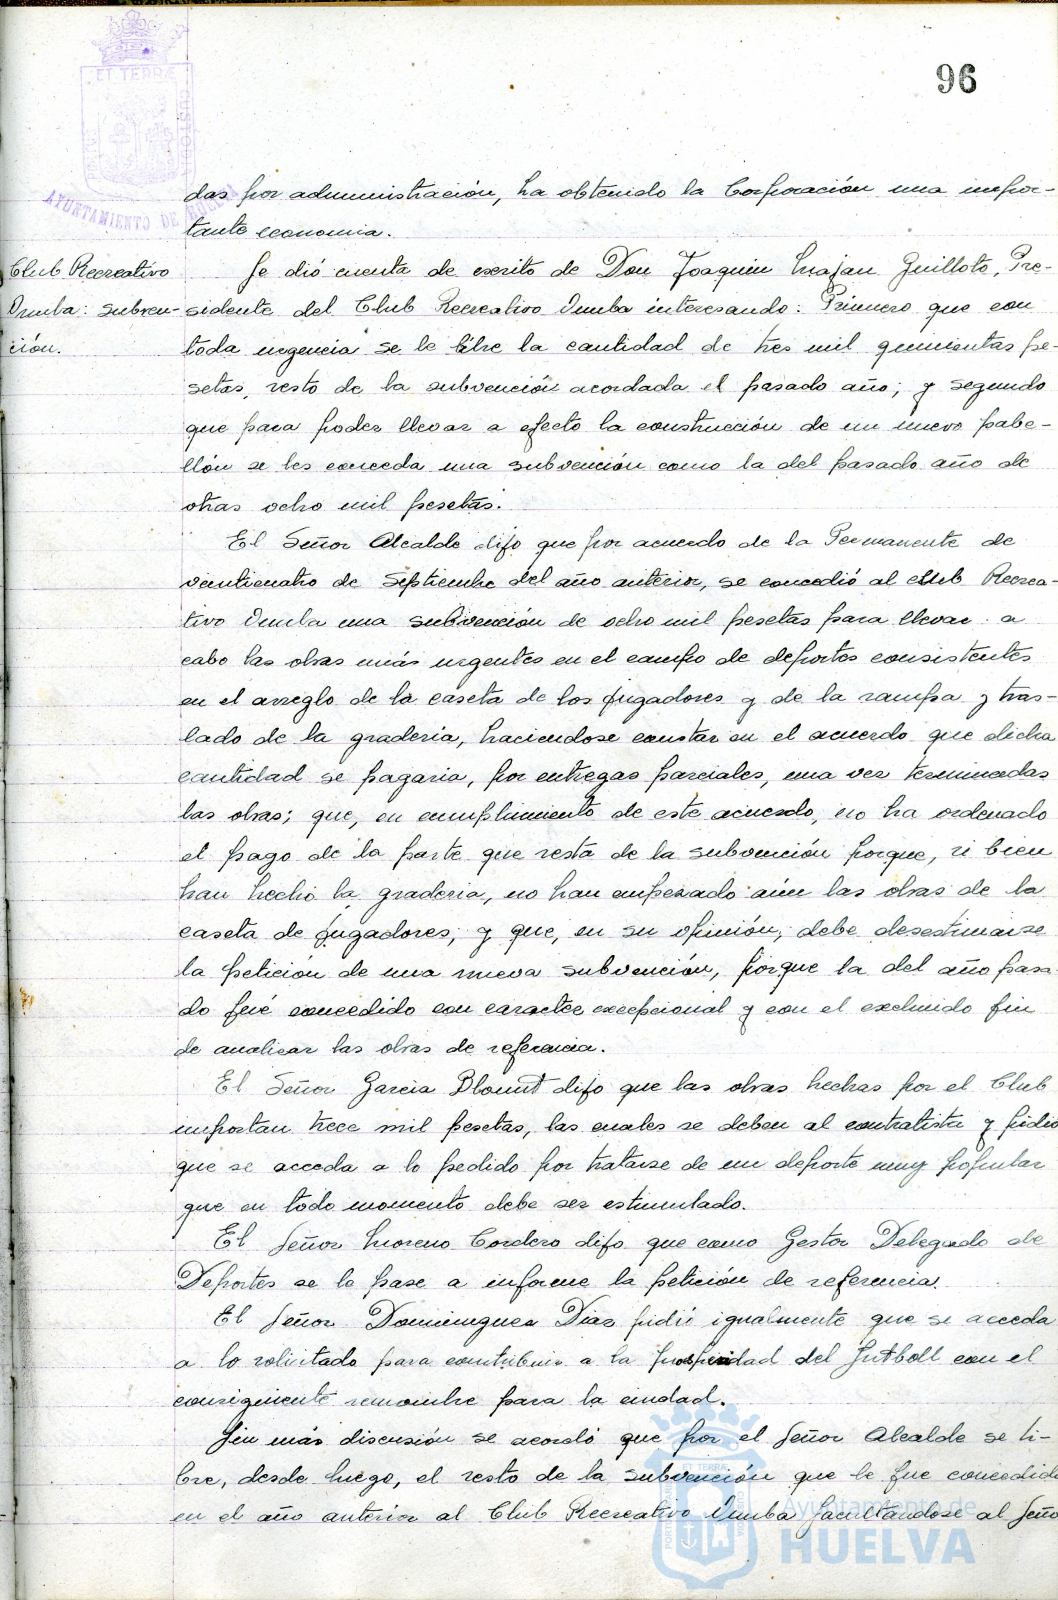 96
ET TERRÆ
AYUNTAMIENTO DE
das por administración, ha obtenido la Corporación una impor-
tante economia.
Club Recreativo
Onuba: subven-
ción.
Se dió cuenta de escrito de Don Joaquin Guilloto, Pre-
sidente del Club Recreativo Onuba interesando: Primero que con
toda urgencia se le libre la cantidad de tres mil quinientas pe-
setas, resto de la subvención acordada el pasado año; y segundo
que para poder llevar a efecto la construcción de un nuevo pabe-
llón se les conceda una subvención como la del pasado año de
otras ocho mil pesetas.
El Señor Alcalde dijo que por acuerdo de la Permanente de
veinticuatro de Septiembre del año anterior, se concedió al Club Recrea-
tivo Onuba una subvención de ocho mil pesetas para llevar a
cabo las obras más urgentes en el campo de deportes consistentes
en el arreglo de la caseta de los jugadores y de la rampa y tras-
lado de la graderia, haciendose constar en el acuerdo que dicha
cantidad se pagaria, por entregas parciales, una vez terminadas
las obras; que, en cumplimiento de este acuerdo, no ha ordenado
el pago de la parte que resta de la subvención porque, si bien
han hecho la graderia, no han empezado aún las obras de la
caseta de jugadores; y que, en su opinión, debe desestimarse
la petición de una nueva subvención, porque la del año pasa-
do fué concedido con caracter excepcional y con el fin
de las obras de referencia.
El Señor Garcia Blount dijo que las obras hechas por el Club
importan trece mil pesetas, las cuales se deben al contratista y pidió
que se acceda a lo pedido por tratarse de un deporte muy popular
que en todo momento debe ser estimulado.
El Señor Moreno Cordero dijo que como Gestor Delegado de
Deportes se le pase a informe la petición de referencia.
El Señor Dominguez Diaz pidió igualmente que se acceda
a lo solicitado para contribuir a la prosperidad del futboll con el
consiguiente renombre para la ciudad.
Sin más discusión se acordó que por el Señor Alcalde se li-
bre, desde luego, el resto de la subvención que le fue concedida
en el año anterior al Club Recreativo Onuba facultandose al Seño
Ayuntamiento de
HUELVA